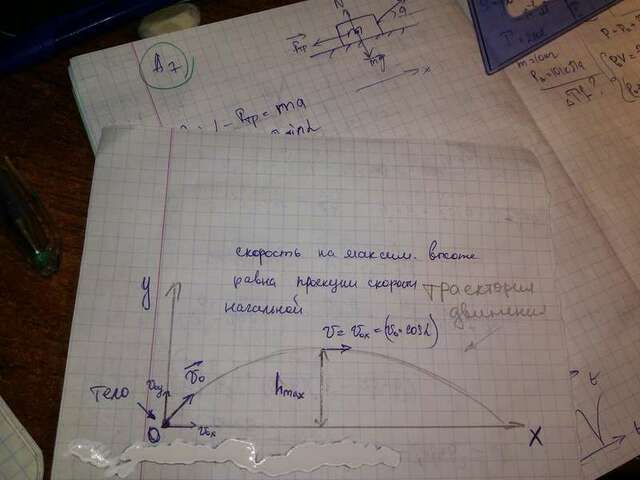 В 7
N
mg
x
Fтр
- Fтр = ma
скорость на максим. высоте
равна проекции скорости
начальной
траектория
движения
v = v₀ₓ = (v₀·cosα)
y
v₀
v₀y
Тело
hmax
O
v₀ₓ
X
t